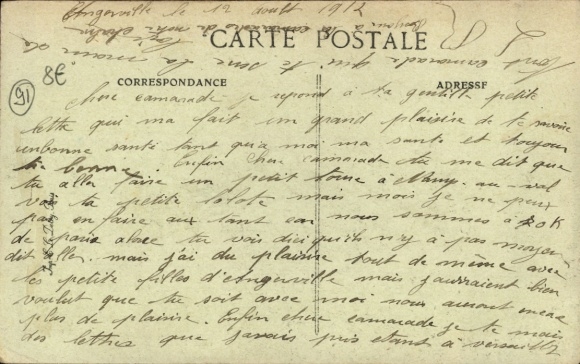 Angerville le 12 août 1912
Bonjour à ta camarade de
CARTE POSTALE
ton camarade qui te serre la main
8€
91
CORRESPONDANCE
ADRESSE
cher camarade je repond à ta gentille petite
lettre qui ma fait un grand plaisire de te savoire
en bonne santé tant qua moi ma santé et toujour
bonne. Enfin cher camarade tu me dit que
tu aller faire un petit tour à au val
voir ta petite lolote mais moi je ne peux
pas en faire aux tant car nous sommes à 70 K
de paris alors tu vois dici quih n'y à pas moyen
dit aller. mais j'ai du plaisire tout de même avec
les petite filles d'Angerville mais j'aurraient bien
voulut que tu soit avec moi nous auront encore
plus de plaisire. Enfin cher camarade je te mais
des lettres que javais pris etant à versaille